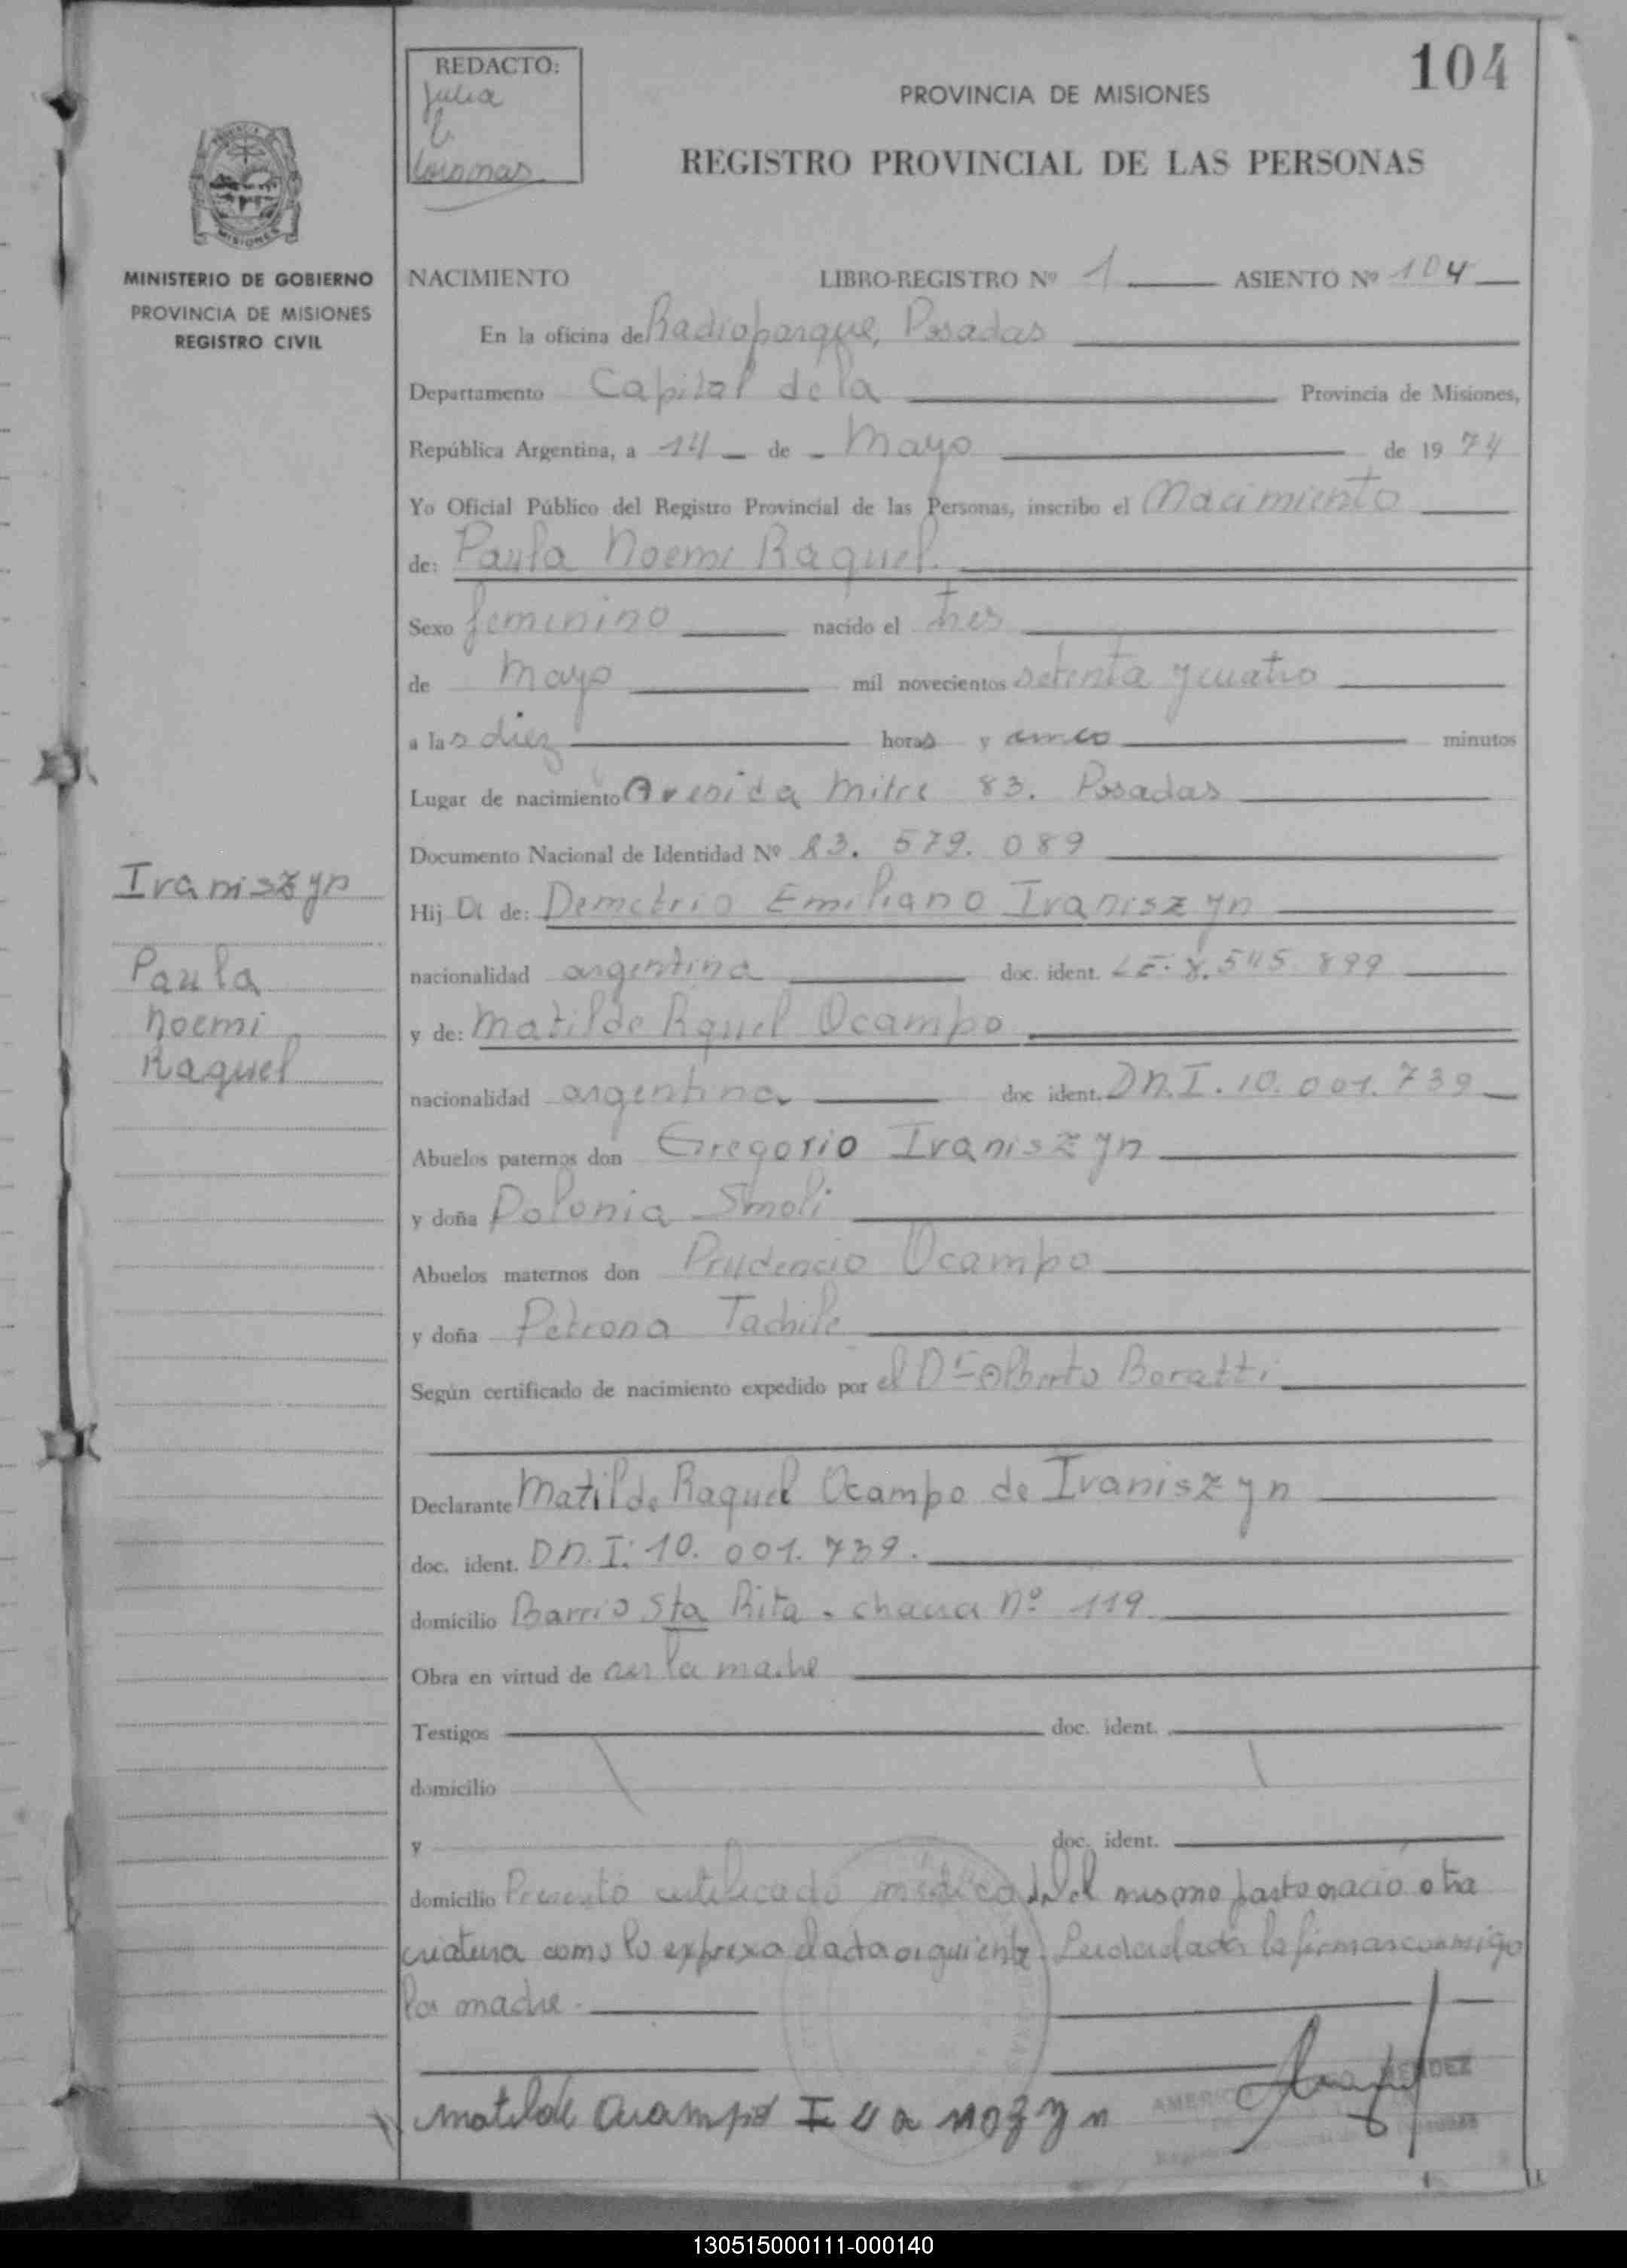 104
REDACTO:
Julia
PROVINCIA DE MISIONES
REGISTRO PROVINCIAL DE LAS PERSONAS
MISIONES
MINISTERIO DE GOBIERNO
PROVINCIA DE MISIONES
REGISTRO CIVIL
NACIMIENTO LIBRO-REGISTRO Nº 1 ASIENTO Nº 104
En la oficina de Radioparque, Posadas
Departamento Capital de la Provincia de Misiones,
República Argentina, a 14 de Mayo de 1974
Yo Oficial Público del Registro Provincial de las Personas, inscribo el Nacimiento
de: Paula Noemi Raquel.
Sexo femenino nacido el tres
de Mayo mil novecientos setenta y cuatro
a las diez horas y cinco minutos
Lugar de nacimiento Avenida Mitre 83. Posadas
Documento Nacional de Identidad Nº 23. 579. 089
Ivaniszyn
Hija de: Demetrio Emiliano Ivaniszyn
Paula
nacionalidad argentina doc. ident. LE. 8.545.899
Noemi
y de: Matilde Rquel Ocampo
Raquel
nacionalidad argentina doc ident. DN.I. 10.001.739
Abuelos paternos don Gregorio Ivaniszyn
y doña Polonia Smoli
Abuelos maternos don Prudencio Ocampo
y doña Petrona Tachile
Según certificado de nacimiento expedido por el Dr Alberto Boratti
Declarante Matilde Raquel Ocampo de Ivaniszyn
doc. ident. DN.I: 10. 001. 739.
domicilio Barrio Sta Rita - chacra Nº 119
Obra en virtud de ser la madre
Testigos doc. ident.
domicilio
y doc. ident.
domicilio Presentó certificado médico del mismo parto nació otra
criatura como lo expresa el acta siguiente. Leida el acta la firman conmigo
la madre.
Matilde Ocampo Ivaniozyn
130515000111-000140